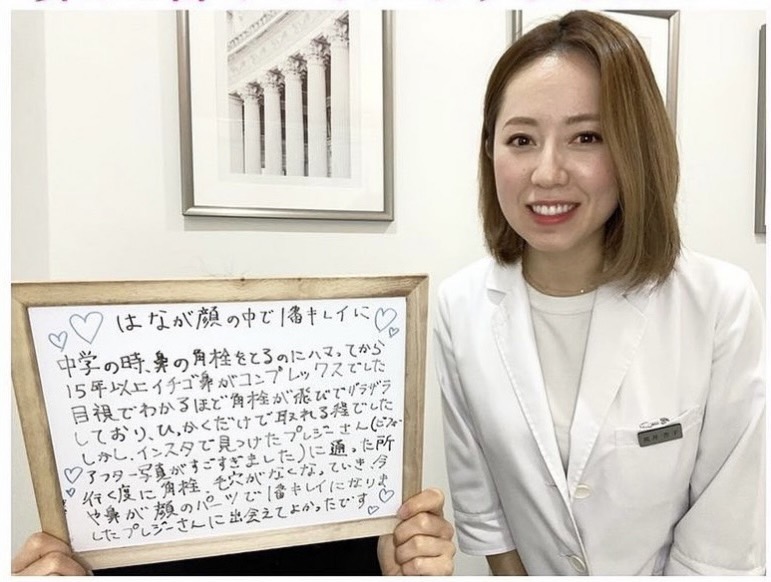 はなが顔の中で1番キレイに
中学の時、鼻の角栓をとるのにハマってから
15年以上イチゴ鼻がコンプレックスでした
目視でわかるほど角栓が飛びでザラザラ
しており、ひっかくだけで取れる程でした
しかし、インスタで見つけたプレジーさん(ビフォ
アフター写真がすごすぎました)に通った所
行く度に角栓、毛穴がなくなっていき、今
や鼻が顔のパーツで1番キレイになりま
したプレジーさんに出会えてよかったです